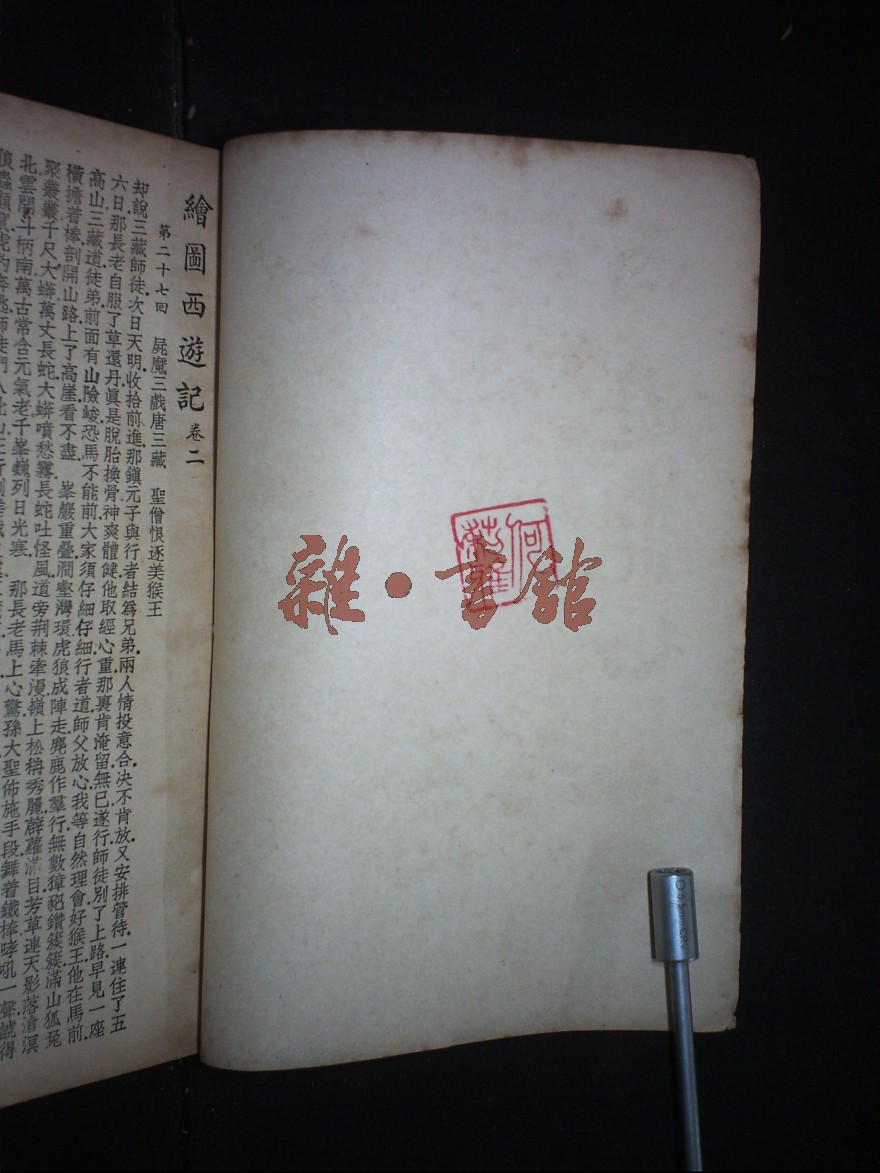 繪圖西遊記 卷二
第二十七回 屍魔三戲唐三藏 聖僧恨逐美猴王
却說三藏師徒次日天明收拾前進那鎮元子與行者結爲兄弟兩人情投意合决不肯放又安排管待一連住了五
六日那長老自服了草還丹眞是脫胎換骨神爽體健他取經心重那裏肯淹留無已遂行師徒別了上路早見一座
高山三藏道徒弟前面有山險峻恐馬不能前大家須仔細仔細行者道師父放心我等自然理會好猴王他在馬前
橫擔着棒剖開山路上了高崖看不盡 峯巖重疊澗壑灣環虎狼成陣走麂鹿作羣行無數獐豝鑽簇簇滿山狐兔
聚叢叢千尺大蟒萬丈長蛇大蟒噴愁霧長蛇吐怪風道旁荆棘牽漫嶺上松楠秀麗薜蘿滿目芳草連天影落滄溟
北雲開斗柄南萬古常含元氣老千峯巍列日光寒 那長老馬上心驚孫大聖佈施手段舞着鐵棒哮吼一聲諕得
雜·書館
何